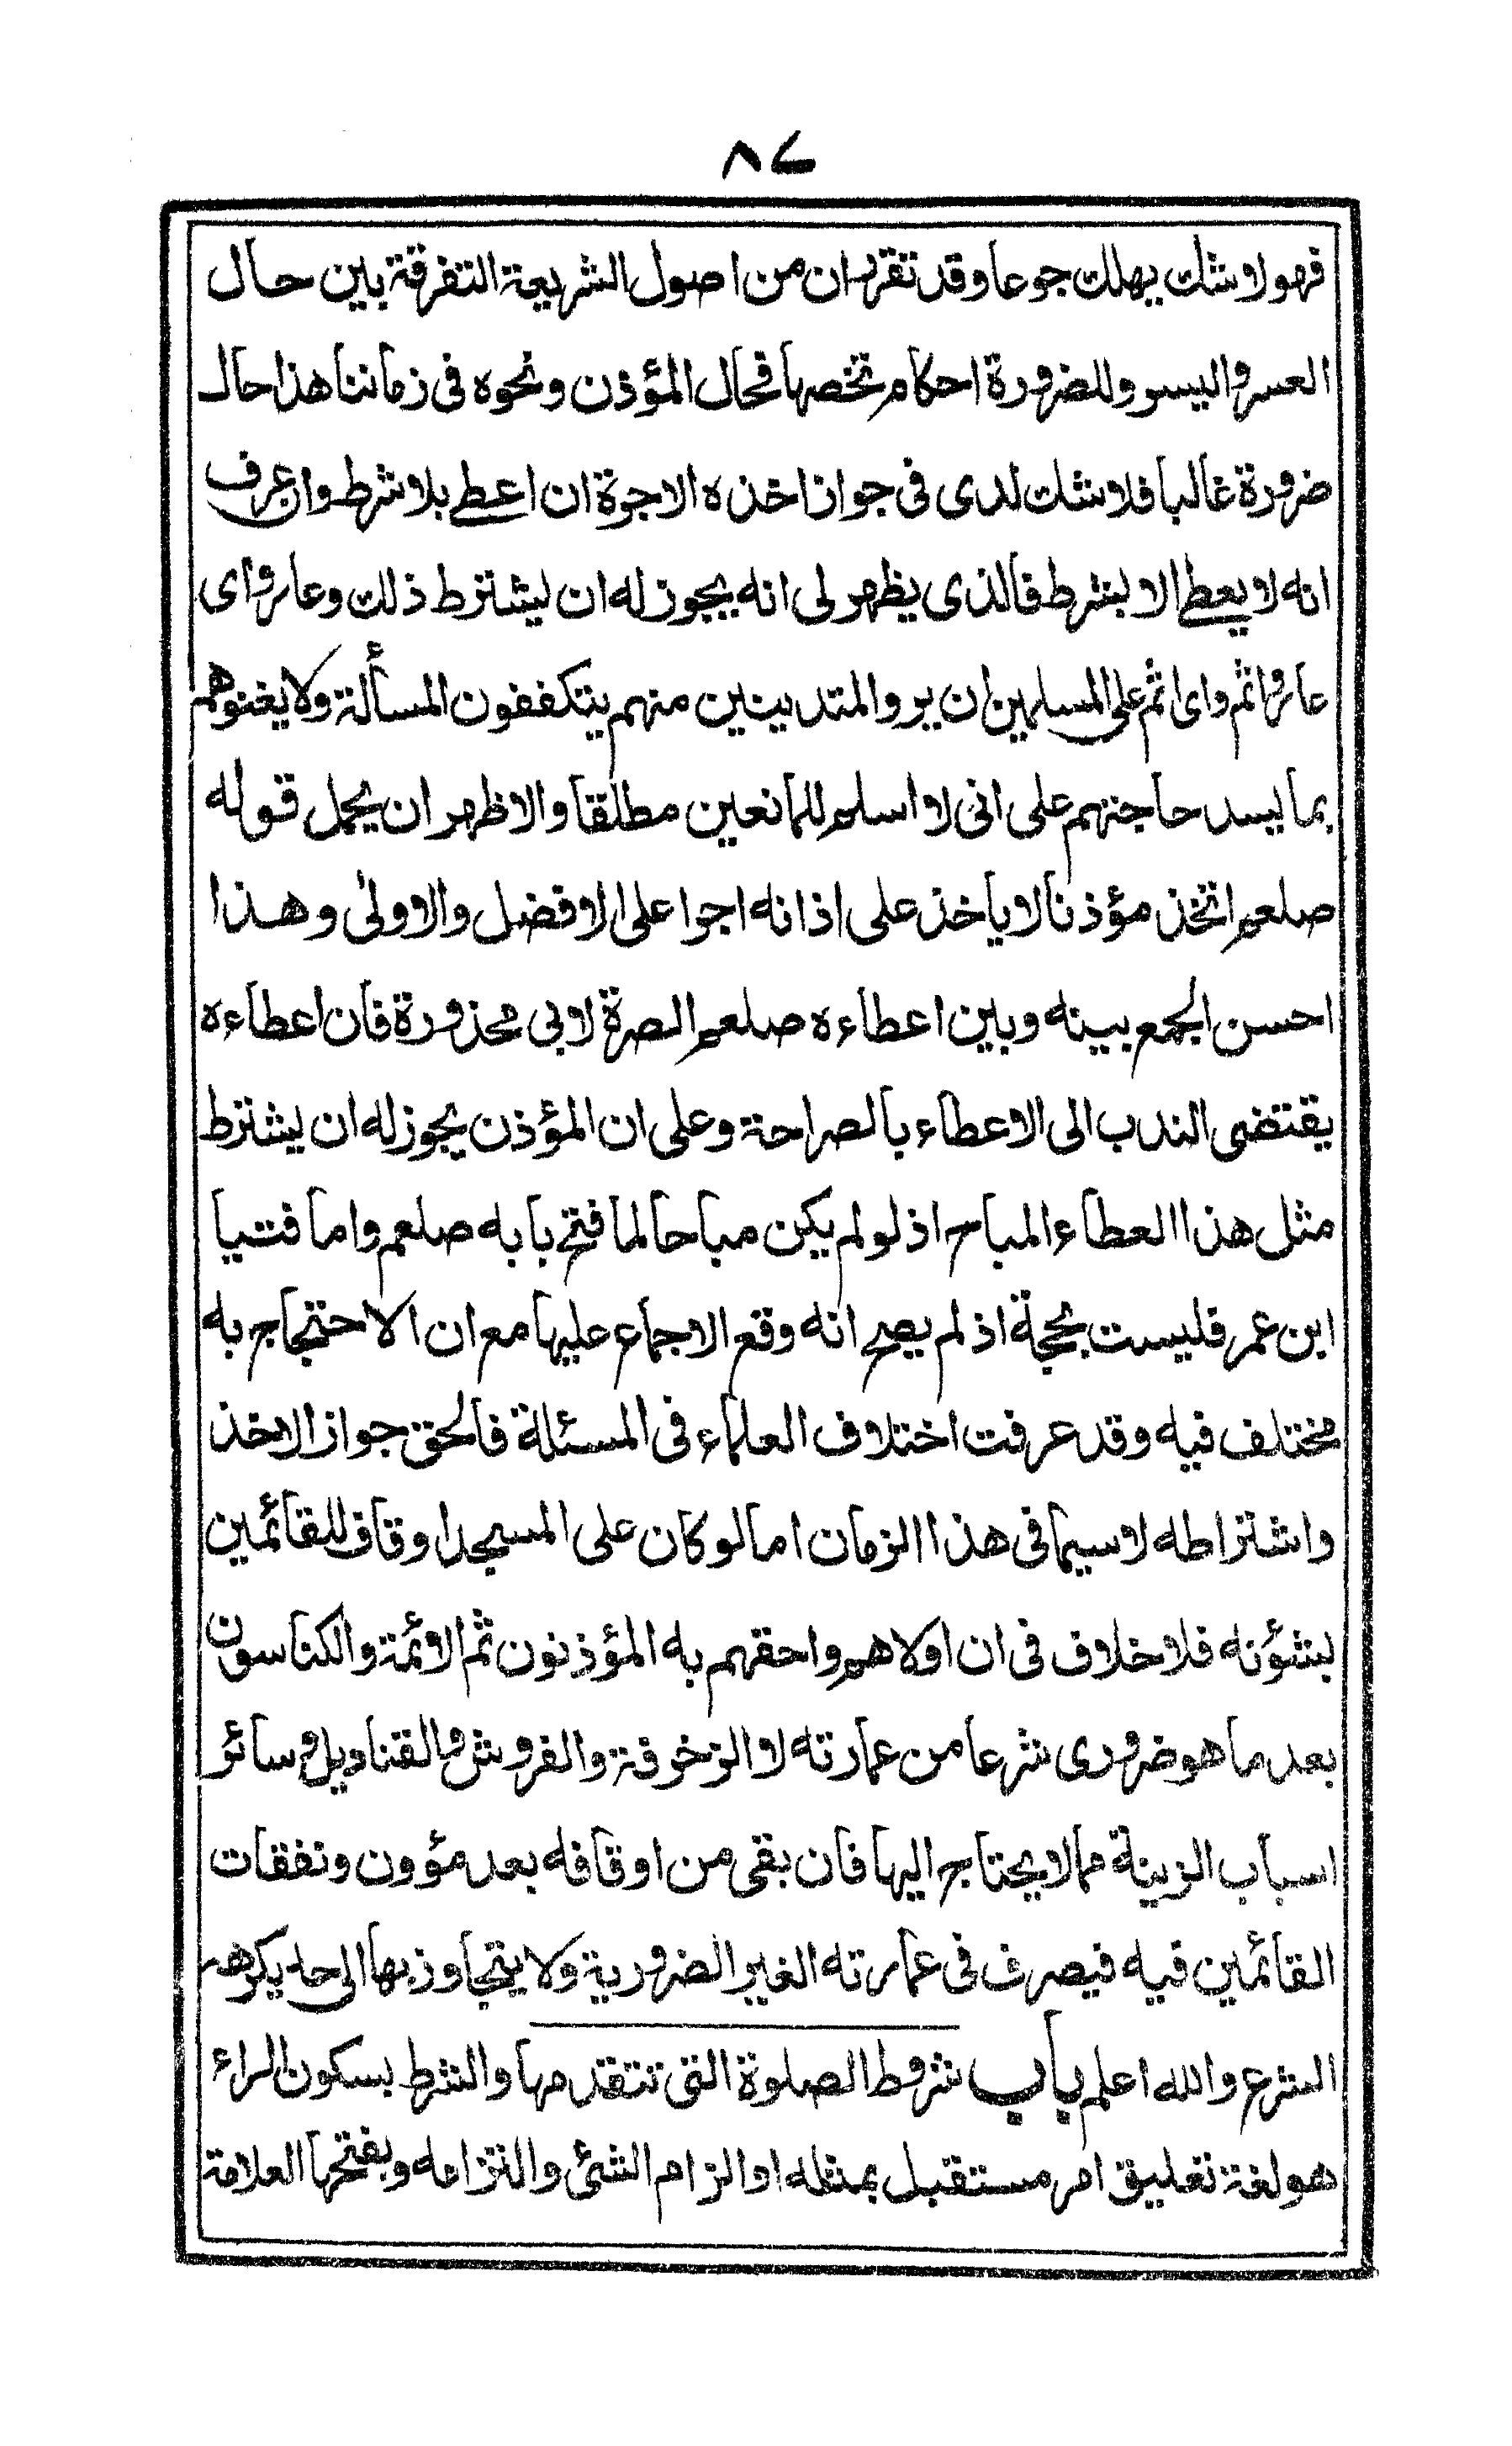 ٨٢
فهو لا شك يهلك جوعا وقد تقرر ان من اصول الشريعة التفرقة بين حال
العسر واليسر وللضرورة احكام تخصها فحال المؤذن ونحوه فى زماننا هذا حال
ضرورة غالبا فلا شك لدى فى جواز اخذه الاجرة ان اعطى بلا شرط وان عرف
انه لا يعطى الا بشرط فالذى يظهر لى انه يجوز له ان يشترط ذلك وعار واى
عار واثم واى اثم على المسلمين ان يروا المتدينين منهم يتكففون المسألة ولا يغنوهم
بما يسد حاجتهم على انى لا اسلم للمانعين مطلقا والاظهر ان يحمل قوله
صلعم اتخذ مؤذنا لا ياخذ على اذانه اجرا على الافضل والاولى وهذا
احسن الجمع بينه وبين اعطاءه صلعم الصرة لابى محذورة فان اعطاءه
يقتضى الندب الى الاعطاء بالصراحة وعلى ان المؤذن يجوز له ان يشترط
مثل هذا العطاء المباح اذ لو لم يكن مباحا لما فتح بابه صلعم واما فتيا
ابن عمر فليست بحجة اذ لم يصح انه وقع الاجماع عليها مع ان الاحتجاج به
مختلف فيه وقد عرفت اختلاف العلماء فى المسئلة فالحق جواز الاخذ
واشتراطه لا سيما فى هذا الزمان اما لو كان على المسجد اوقاف للقائمين
بشؤنه فلا خلاف فى ان اولاهم واحقهم به المؤذنون ثم الائمة والكناسون
بعد ما هو ضرورى شرعا من عمارته لا الزخرفة والفروش والقناديل وسائر
اسباب الزينة مما لا يحتاج اليها فان بقى من اوقافه بعد مؤون ونفقات
القائمين فيه فيصرف فى عمارته الغير الضرورية ولا يتجاوز بها الى حد يكرهه
الشرع والله اعلم باب شروط الصلوة التى تتقدمها والشرط بسكون الراء
هو لغة تعليق امر مستقبل بمثله او الزام الشئ والتزامه وبفتحها العلامة